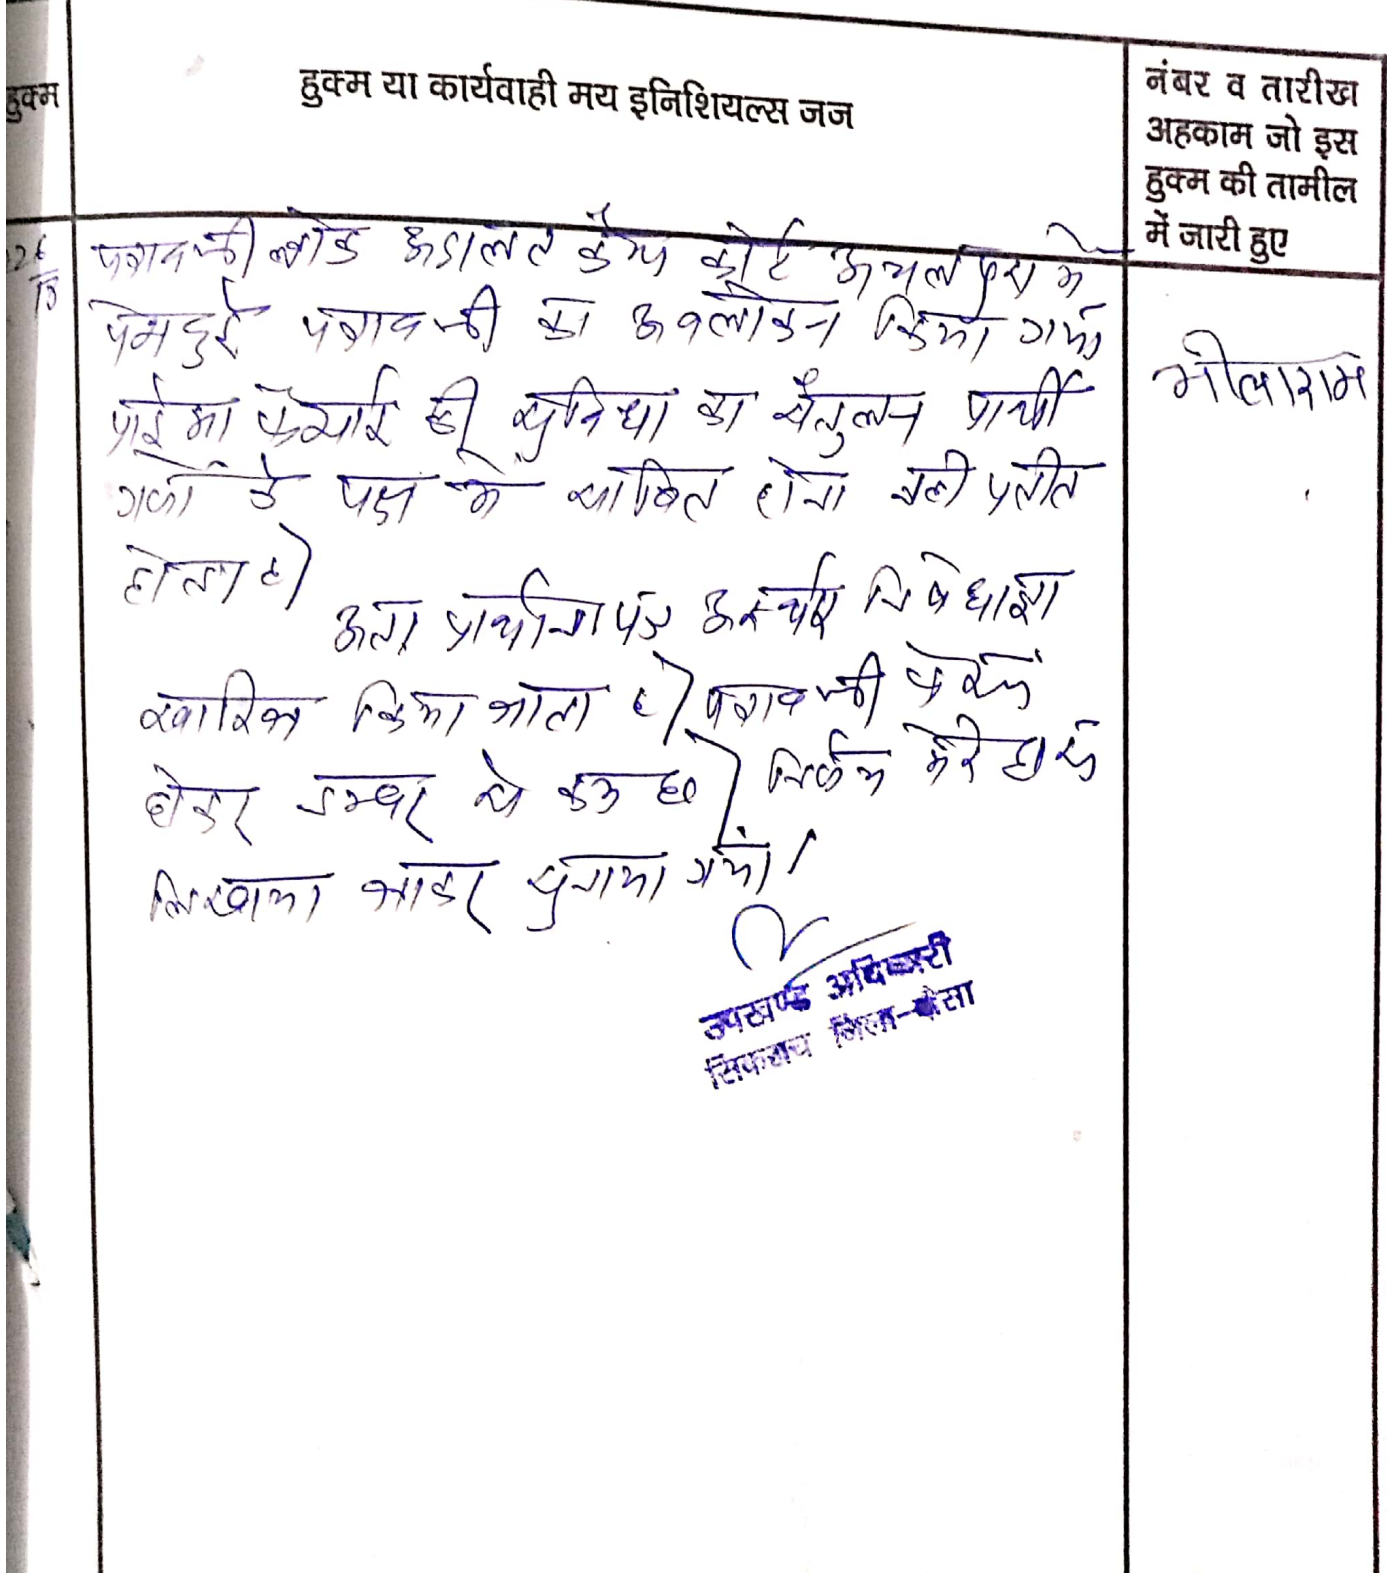 हुक्म
हुक्म या कार्यवाही मय इनिशियल्स जज
नंबर व तारीख
अहकाम जो इस
हुक्म की तामील
में जारी हुए
26
पत्रावली लोक अदालत कैम्प कोर्ट में
पेश हुई पत्रावली का अवलोकन किया गया
प्राईमा फेसाई की सुविधा का संतुलन प्रार्थी
गणों के पक्ष में साबित होना नही प्रतीत
होता है।
अतः प्रार्थना पत्र अस्थाई निषेधाज्ञा
खारिज किया जाता है। पत्रावली फैसल
होकर नम्बर से कम हो। निर्णय मेरे द्वारा
लिखाया जाकर सुनाया गया।
उपखण्ड अधिकारी
सिकराय जिला-दौसा